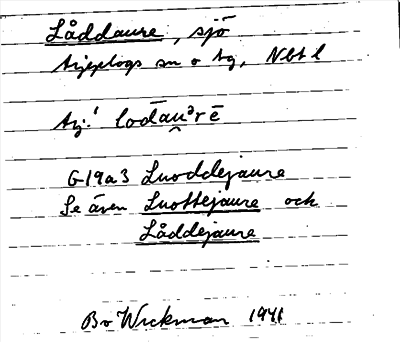 Låddaure, sjö
Arjeplogs sn o tg, Nbt l
Arj: lodāu̯ᵊrē
G19a3 Luoddejaure
Se även Luottejaure och
Låddejaure
Bo Wickman 1941